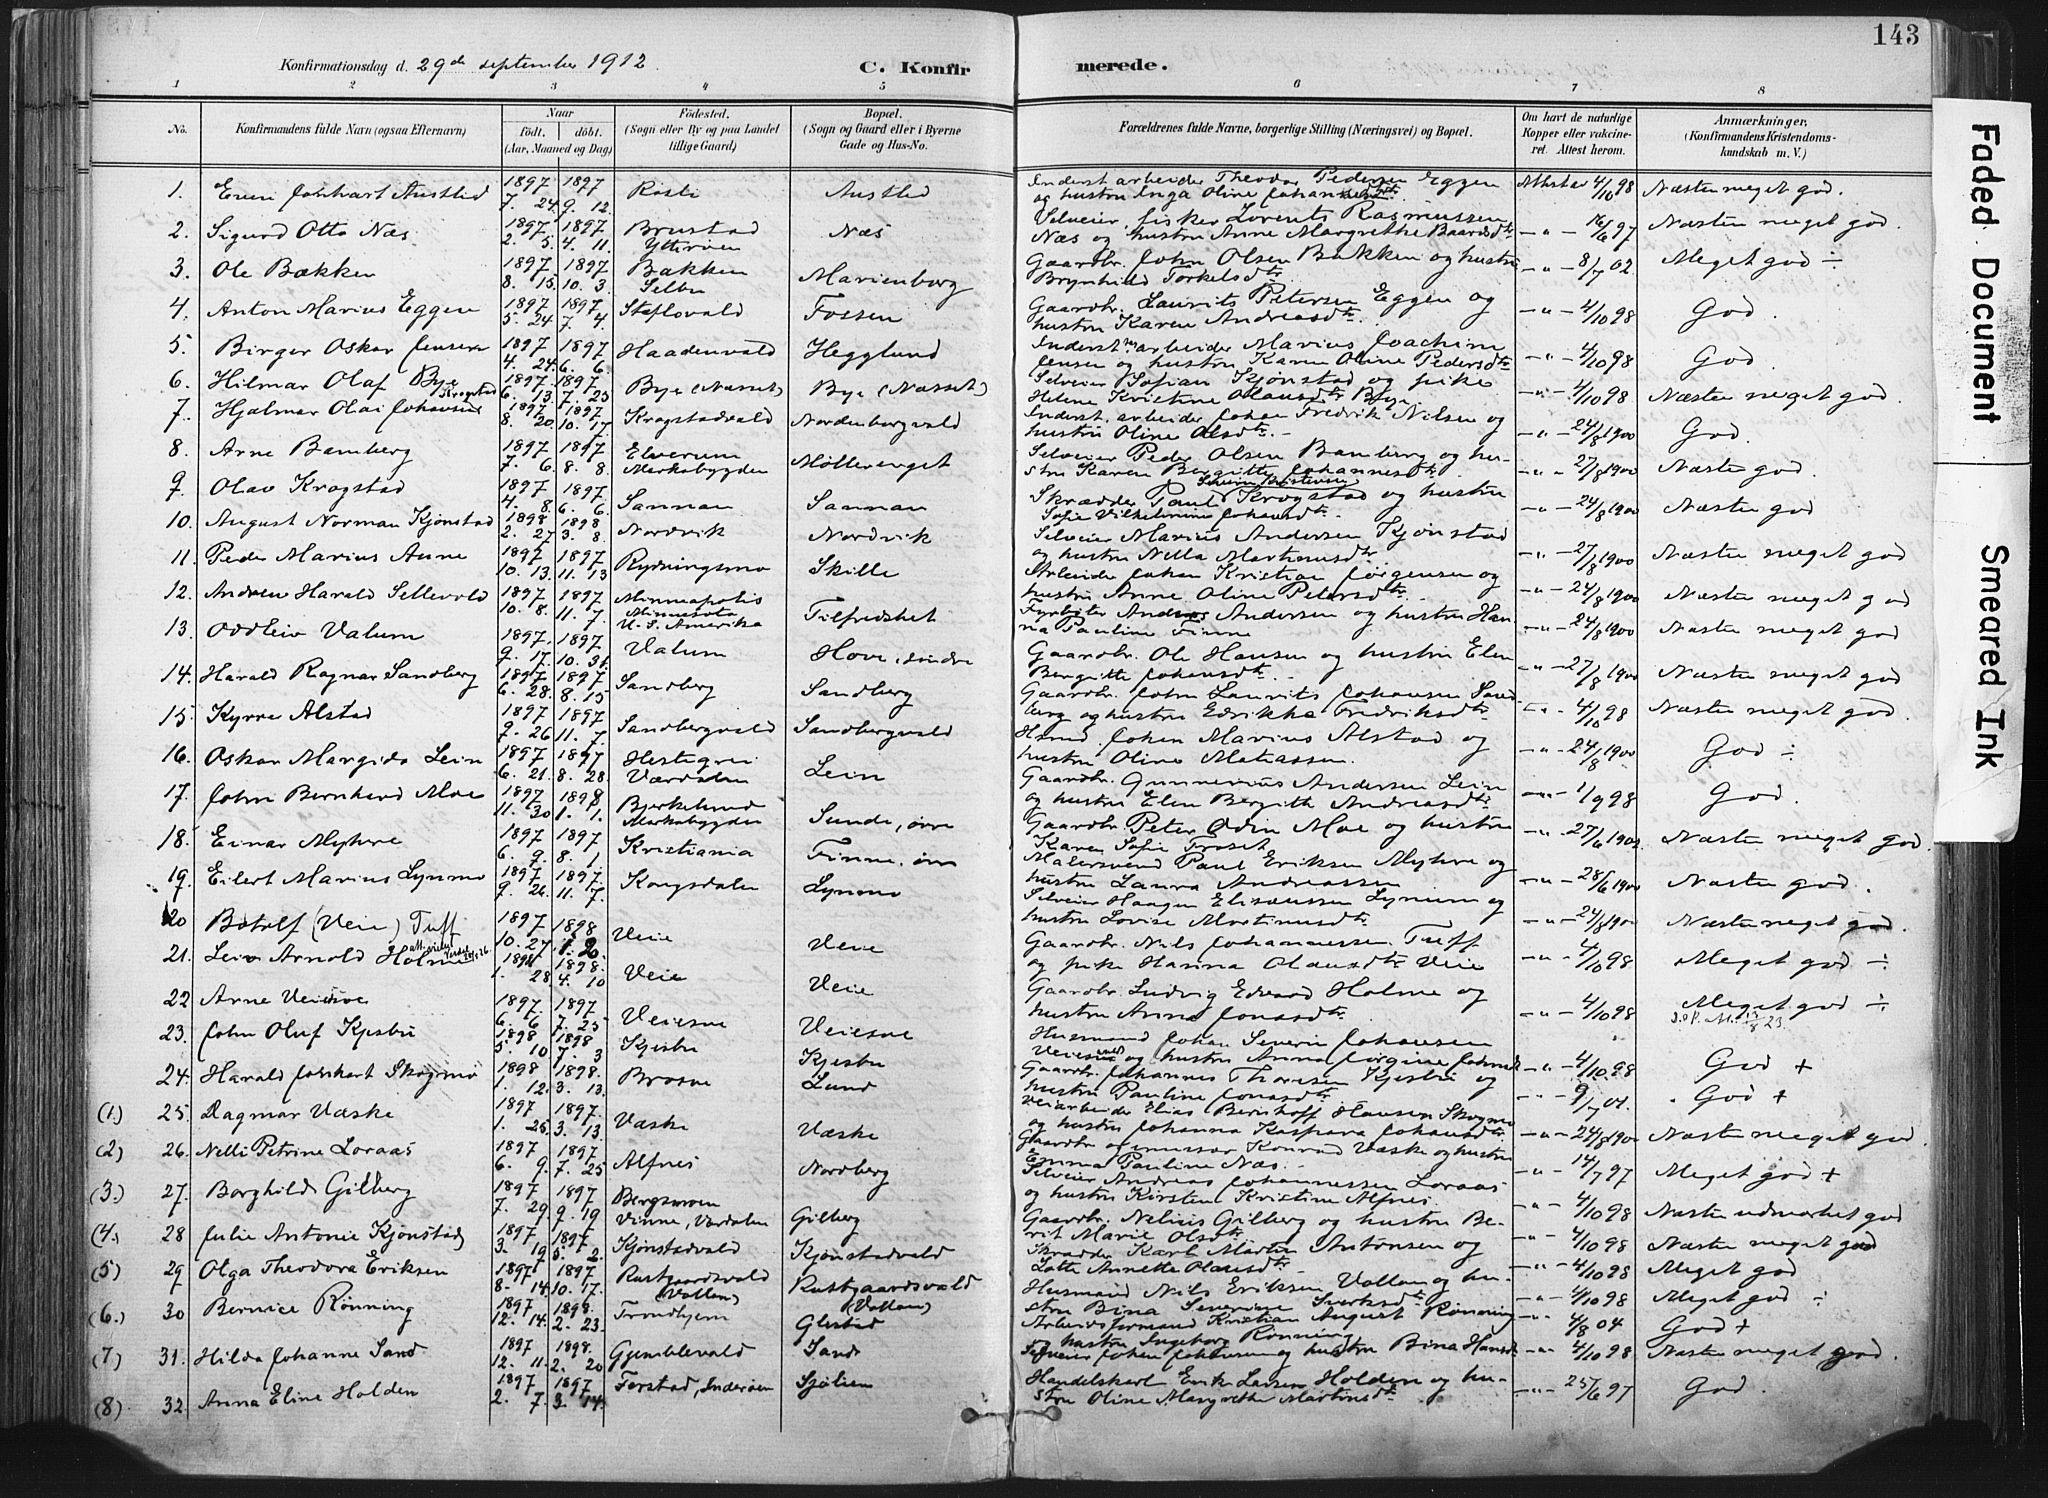 143
Konfirmationsdag d. 29de september 1912.
C. Konfirmerede.
1 2 3 4 5 6 7 8
No.
Konfirmandens fulde Navn (ogsaa Efternavn)
Naar
født. døbt.
(Aar, Maaned og Dag)
Fødested.
(Sogn eller By og paa Landet
tillige Gaard)
Bopæl.
(Sogn og Gaard eller i Byerne
Gade og Hus-No.
Forældrenes fulde Navne, borgerlige Stilling (Næringsvei) og Bopæl.
Om havt de naturlige
Kopper eller vakcine-
ret. Attest herom.
Anmærkninger,
(Konfirmandens Kristendoms-
kundskab m. V.)
1. 1897 7. 24. 1897 9. 12. Rosti Austlid Inderst arbeider Theodor Pedersen Eggen og hustru Inga Oline 4/10 98 Næsten meget god.
2. Sigurd Otto Næs 1897 2. 5. 1897 4. 11. Brustad Ytterøen Næs Selveier, fisker Lorents Rasmussen Næs og hustru Anne Margrethe Baardsdtr. 16/6 97 Næsten meget god.
3. Ole Bakken 1897 8. 15. 1897 10. 3. Bakken Selbu Marienborg Gaardbr. John Olsen Bakken og hustru Brynhild Torkelsdtr. 8/7 02 Meget god ÷
4. Anton Marius Eggen 1897 5. 24 1897 7. 4. Fossen Gaardbr. Laurits Petersen Eggen og hustru Karen Andreasdtr. 4/10 98 God.
5. Birger Oskar Jensen 1897 4. 24. 1897 6. 6. Haadenvald Hegglund Inderst, arbeider Marius Joachim Jensen og hustru Karen Oline Pedersdtr. 4/10 98 God
6. Hilmar Olaf Bye 1897 6. 13. 1897 7. 25 Bye (Næsset) Bye (Næsset) Selveier Sofian Kjønstad og pike Helene Kristine Olausdtr Bye 4/10 98 Næsten meget god.
7. Hjalmar Olai Johansen 1897 8. 20 1897 10. 17 Krogstadvald Nordenborgvald Inderst, arbeider Johan Fredrik Nilsen og hustru Oline Olsdtr. 24/8 1900 God.
8. Arne Bamberg 1897 7. 6. 1897 8. 8. Elverum Markabygden Møllerenget Selveier Peder Olsen Bamberg og hustru Karen Bergitte Johannesdtr. 27/8 1900 Næsten god.
9. Olav Krogstad 1897 4. 8. 1897 6. 6. Sannan Sannan Skrædder Paul Krogstad og hustru Sofie Vilhelmine Johansdtr. 24/8 1900 Næsten god
10. August Norman Kjønstad 1898 2. 27 1898 3. 8. Nordvik Nordvik Selveier Marius Andersen Kjønstad og hustru Nella Martinusdtr. 27/8 1900 Næsten meget god
11. Peder Marius Aune 1897 10. 13. 1897 11. 13 Rydningsmo Skille Arbeider Johan Kristian Jørgensen og hustru Anne Oline Petersdtr. 24/8 1900 Næsten meget god
12. Andreas Harald Sellevold 1897 10. 8. 1897 11. 7. Minneapolis Minnesota U. S. Amerika Tilfredshet Fyrbøter Andreas Andersen og hustru Hanna Pauline Finne 24/8 1900 Næsten meget god
13. Oddleiv Valum 1897 9. 17. 1897 10. 31. Valum Hove, Gaardbr. Ole Hansen og hustru Elen Bergitte Johansdtr. 27/8 1900 Næsten meget god
14. Harald Ragnar Sandberg 1897 6. 28. 1897 8. 15 Sandberg Sandberg Gaardbr. John Laurits Johansen Sandberg og hustru Edrikke Fredriksdtr. 4/10 98 Næsten meget god.
15. Kyrre Alstad 1897 9. 26 1897 11. 7. Sandbergvald Sandbergvald Husmd Johan Marius Alstad og hustru Oline Matiassen 24/8 1900 God ÷
16. Oskar Margido Lein 1897 6. 21. 1897 8. 28 Hestegrei Værdalen Lein Gaardbr. Gunnerius Andersen Lein og hustru Elen Bergitte Andreasdtr. 1/9 98 God.
17. John Bernhard Moe 1897 11. 30 1898 1. 1. Bjerkelund Markabygden Sunde, øvre Gaardbr. Peter Odin Moe og hustru Karen Sofie Froset 27/6 1900 Næsten meget god.
18. Einar Myhre 1897 6. 9. 1897 8. 1. Kristiania Finne, Malersvend Paul Eriksen Myhre og hustru Laura Andreassen 28/6 1900 Næsten god.
19. Eilert Marius Lynmo 1897 9. 26. 1897 11. 7. Kongsdalen Lynmo Selveier Haagen Elisæussen Lynum og hustru Lovise Martinusdtr. 24/8 1900 Næsten meget god.
20 Botolf (Veie) Tuff 1897 10. 27 1898 Veie Veie Gaardbr. Nils Johannessen Tuff og pike Hanna Olausdtr Veie 4/10 98 Meget god ÷
21. Leiv Arnold Holme 1898 1. 28 1898. 4. 10 Veie Veie Gaardbr. Ludvig Edvard Holme og hustru Anna Jonasdtr. 4/10 98 Meget god ÷
22 Arne Veiesve 1897. 6. 6 1897 7. 25 Veiesve Veiesve Husmand Johan Severin Johansen Veiesve og hustru Anna Jørgine 4/10 98 God +
23. John Oluf Kjesbu 1898 5. 10 1898 7. 3 Kjesbu Kjesbu Gaardbr. Johannes Thoresen Kjesbu og hustru Pauline Jonasdtr. 9/7 01. God +
24. Harald Johhart Skogmo 1898 1. 12. 1898. 3. 13. Brosve Lund Veiarbeider Elias Bernhoff Hansen Skogmo og hustru Johanna Kaspara Johansdtr. 24/8 1900 Næsten meget god.
(1.) 25. Dagmar Væske 1897 1. 25. 1897. 3. 13. Væske Væske Gaardbr Konrad Væske og hustru Emma Pauline Næs. 14/7 97 Meget god +
(2) 26. Nelli Petrine Loraas 1897 6. 9. 1897 7. 25 Alfnes Nordberg Selveier Andreas Johannessen Loraas og hustru Kirsten Kristine Alfnes. 4/10 98 Næsten udmærket god
(3.) 27. Borghild Gilberg 1897 7. 29. 1897 9. 19 Bergsmoen Vinne, Værdalen Gilberg Gaardbr. Nelius Gilberg og hustru Berit Marie Olsdtr. 4/10 98 Næsten meget god
(4.) 28 Julie Antonie Kjønstad 1897 3. 19 1897 5. 2. Kjønstadvald Kjønstadvald Skrædder Karl Martin Antonsen og Lotte Annette Olausdtr. 4/10 98 Meget god
(5) 29 Olga Theodora Eriksen 1897 8. 14. 1897 10. 17. Rustgaardsvald (Vollan) Rustgaardsvald (Vollan) Husmand Nils Eriksen Vollan og hustru Bina Severine Sivertsdtr 4/10 98 Meget god ÷
(6.) 30 Bernice Rønning 1897 12. 14. 1898. 2. 23. Trondhjem Glestad Arbeidsformand Kristian August Rønning og hustru Ingeborg Rønning 4/8 04 God +
(7) 31. Hilda Johanne Sand 1897 12. 11. 1898. 2. 20 Gjemblevald Sand Selveier Johan Johansen og hustru Bina Hansdtr 4/10 98 Næsten meget god.
(8) 32. Anna Eline Holden 1897 2. 7. 1897 3. 14. Forstad, Inderøen Sjølien Handelskarl Erik Larsen Holden og hustru Oline Margrethe Martinsdtr. 25/6 97 God.
Faded Document
Smeared Ink